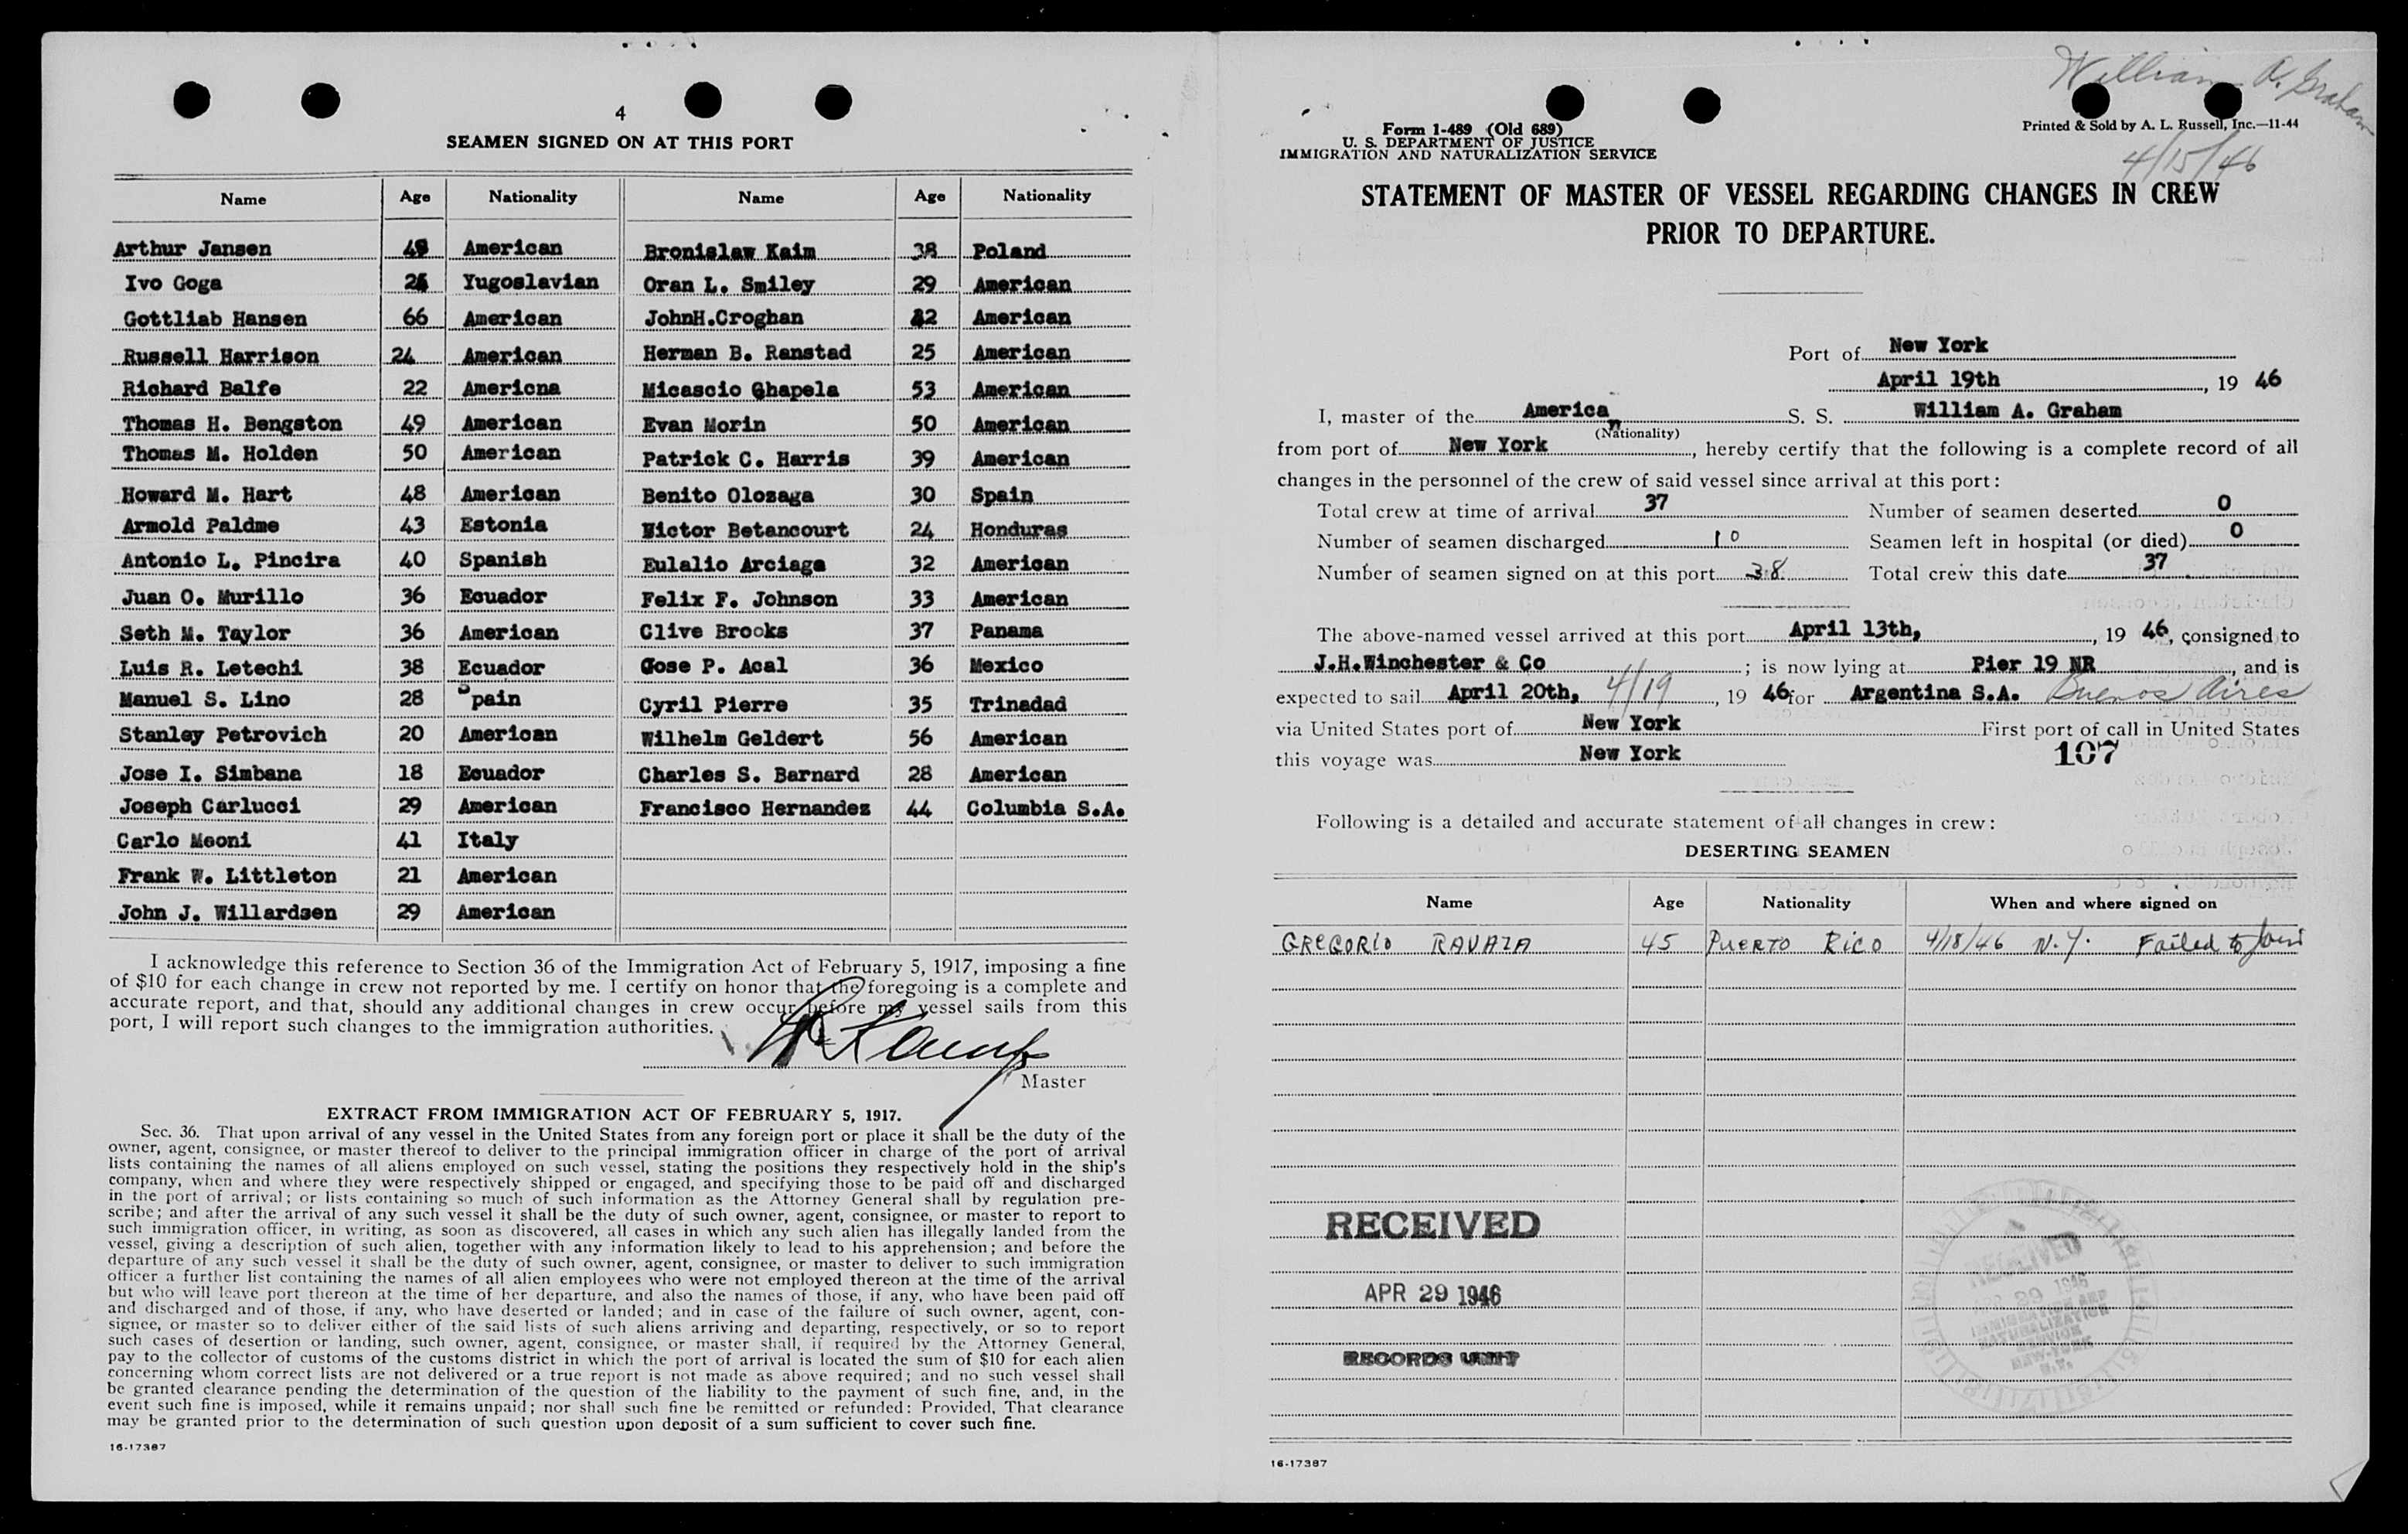 4
SEAMEN SIGNED ON AT THIS PORT
Name Age Nationality Name Age Nationality
Arthur Jansen American Bronislaw Kaim 38 Poland
Ivo Goga Yugoslavian Oran L. Smiley 29 American
Gottliab Hansen 66 American JohnH.Croghan American
Russell Harrison 24 American Herman B. Ranstad 25 American
Richard Balfe 22 Americna Micascio Ghapela 53 American
Thomas H. Bengston 49 American Evan Morin 50 American
Thomas M. Holden 50 American Patrick C. Harris 39 American
Howard M. Hart 48 American Benito Olozaga 30 Spain
Armold Paldme 43 Estonia Victor Betancourt 24 Honduras
Antonio L. Pincira 40 Spanish Eulalio Arciaga 32 American
Juan O. Murillo 36 Ecuador Felix F. Johnson 33 American
Seth M. Taylor 36 American Clive Brooks 37 Panama
Luis R. Letechi 38 Ecuador Jose P. Acal 36 Mexico
Manuel S. Lino 28 Spain Cyril Pierre 35 Trinadad
Stanley Petrovich 20 American Wilhelm Geldert 56 American
Jose I. Simbana 18 Ecuador Charles S. Barnard 28 American
Joseph Carlucci 29 American Francisco Hernandez 44 Columbia S.A.
Carlo Meoni 41 Italy
Frank W. Littleton 21 American
John J. Willardsen 29 American
I acknowledge this reference to Section 36 of the Immigration Act of February 5, 1917, imposing a fine
of $10 for each change in crew not reported by me. I certify on honor that the foregoing is a complete and
accurate report, and that, should any additional changes in crew occur before my vessel sails from this
port, I will report such changes to the immigration authorities.
Master
EXTRACT FROM IMMIGRATION ACT OF FEBRUARY 5, 1917.
Sec. 36. That upon arrival of any vessel in the United States from any foreign port or place it shall be the duty of the
owner, agent, consignee, or master thereof to deliver to the principal immigration officer in charge of the port of arrival
lists containing the names of all aliens employed on such vessel, stating the positions they respectively hold in the ship's
company, when and where they were respectively shipped or engaged, and specifying those to be paid off and discharged
in the port of arrival; or lists containing so much of such information as the Attorney General shall by regulation pre-
scribe; and after the arrival of any such vessel it shall be the duty of such owner, agent, consignee, or master to report to
such immigration officer, in writing, as soon as discovered, all cases in which any such alien has illegally landed from the
vessel, giving a description of such alien, together with any information likely to lead to his apprehension; and before the
departure of any such vessel it shall be the duty of such owner, agent, consignee, or master to deliver to such immigration
officer a further list containing the names of all alien employees who were not employed thereon at the time of the arrival
but who will leave port thereon at the time of her departure, and also the names of those, if any, who have been paid off
and discharged and of those, if any, who have deserted or landed; and in case of the failure of such owner, agent, con-
signee, or master so to deliver either of the said lists of such aliens arriving and departing, respectively, or so to report
such cases of desertion or landing, such owner, agent, consignee, or master shall, if required by the Attorney General,
pay to the collector of customs of the customs district in which the port of arrival is located the sum of $10 for each alien
concerning whom correct lists are not delivered or a true report is not made as above required; and no such vessel shall
be granted clearance pending the determination of the question of the liability to the payment of such fine, and, in the
event such fine is imposed, while it remains unpaid; nor shall such fine be remitted or refunded: Provided, That clearance
may be granted prior to the determination of such question upon deposit of a sum sufficient to cover such fine.
16-17387
William A. Graham
4/15/46
Form 1-489 (Old 689)
U. S. DEPARTMENT OF JUSTICE
IMMIGRATION AND NATURALIZATION SERVICE
Printed & Sold by A. L. Russell, Inc.—11-44
STATEMENT OF MASTER OF VESSEL REGARDING CHANGES IN CREW
PRIOR TO DEPARTURE.
Port of New York
April 19th, 19 46
I, master of the American S. S. William A. Graham
(Nationality)
from port of New York, hereby certify that the following is a complete record of all
changes in the personnel of the crew of said vessel since arrival at this port:
Total crew at time of arrival 37 Number of seamen deserted 0
Number of seamen discharged 10 Seamen left in hospital (or died) 0
Number of seamen signed on at this port 38 Total crew this date 37
The above-named vessel arrived at this port April 13th, , 19 46, consigned to
J.H.Winchester & Co ; is now lying at Pier 19 NR, and is
expected to sail April 20th, 4/19, 19 46 for Argentina S.A. Buenos Aires
via United States port of New York First port of call in United States
this voyage was New York 107
Following is a detailed and accurate statement of all changes in crew:
DESERTING SEAMEN
Name Age Nationality When and where signed on
GREGORIO RAVAZA 45 PUERTO RICO 4/18/46 N.Y. Failed to Join
RECEIVED
APR 29 1946
RECORDS UNIT
RECEIVED
APR 29 1946
IMMIGRATION AND
NATURALIZATION
SERVICE
NEW-YORK
N.Y.
16-17387